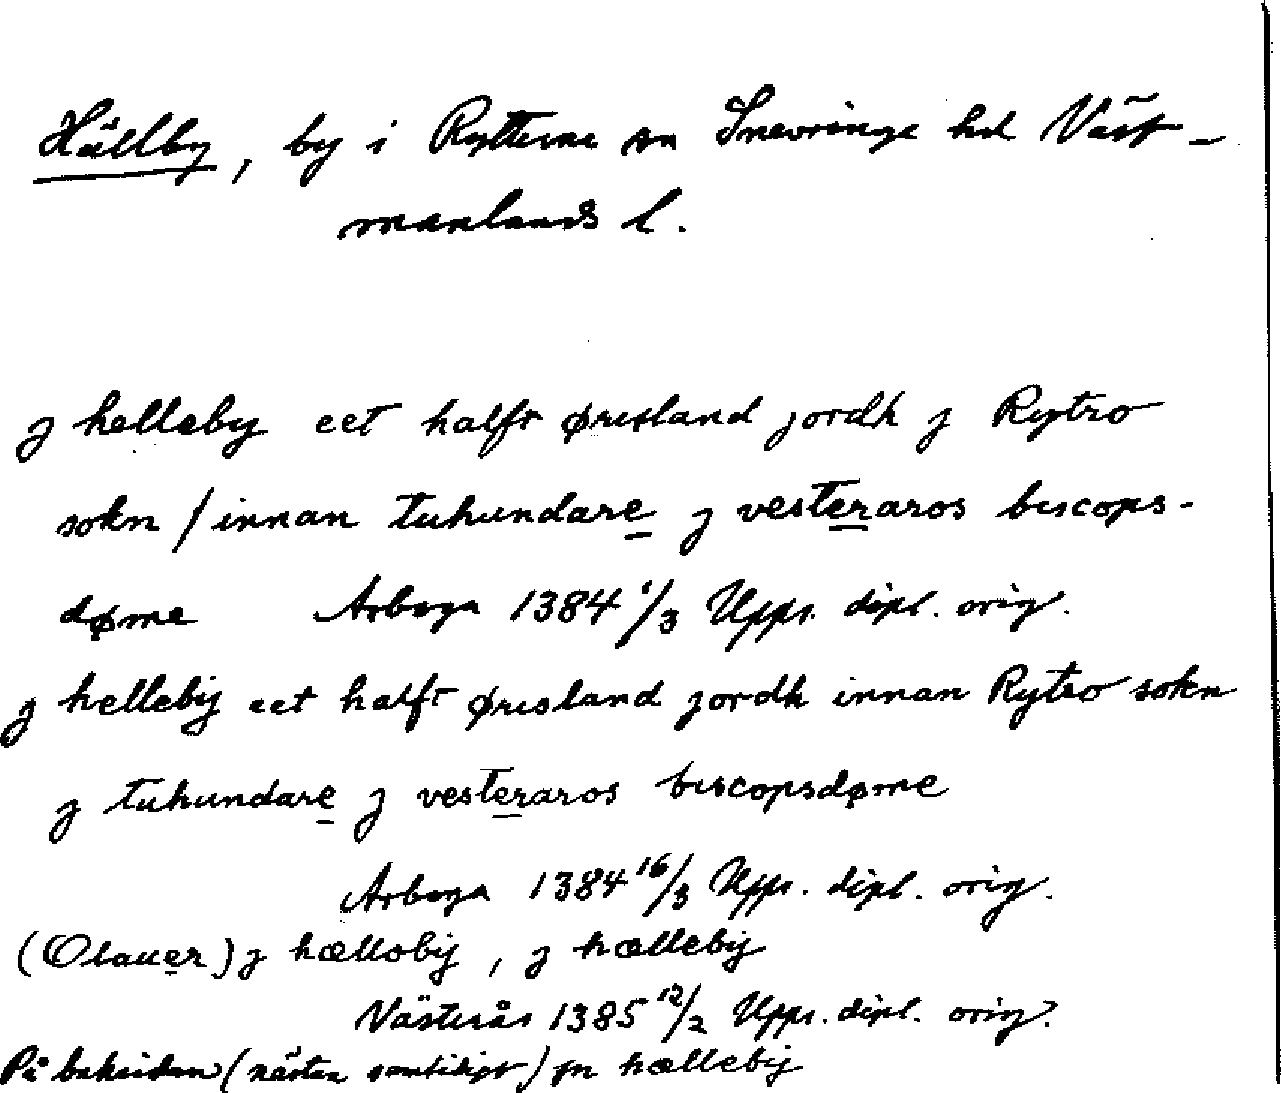 Hällby, by i Rytterne sn Snevringe hd Väst-
manlands l.
j helleby eet halft ørisland jordh j Rytro
sokn / innan tuhundare j vesteraros biscops-
døme Arboga 1384 1/3 Upps. dipl. orig.
j hellebij eet halft ørisland jordh innan Rytro sokn
j tuhundare j vesteraros biscopsdøme
Arboga 1384 16/3 Upps. dipl. orig.
(Olauer) j hællobij, j hællebij
Västerås 1385 12/2 Upps. dipl. orig.
På baksidan (nästan samtidigt) hællebij